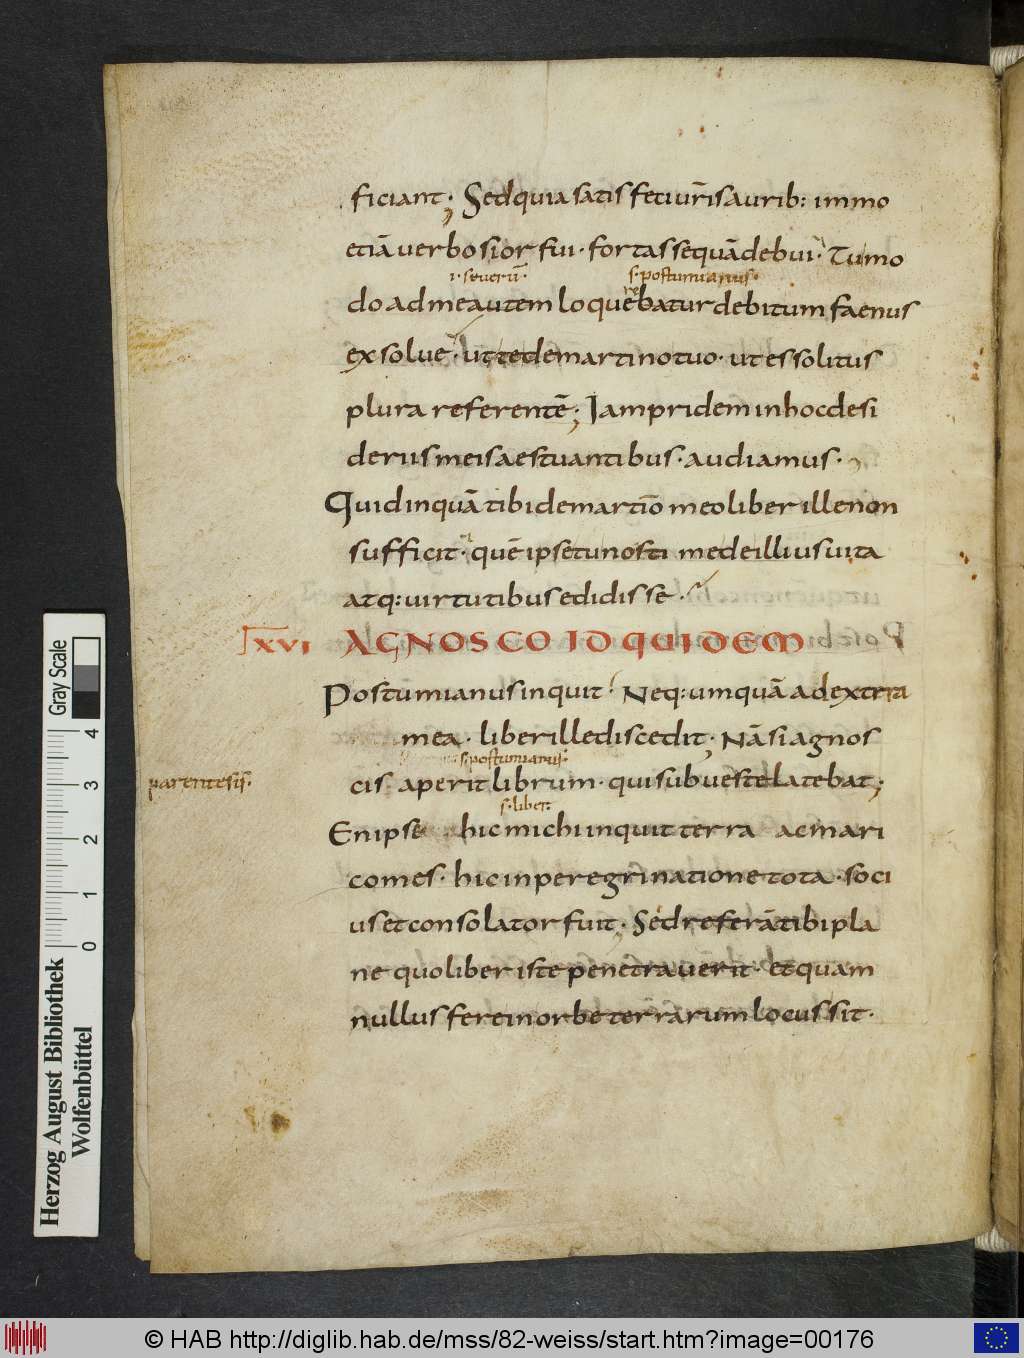 ficiant; Sed quia satis feci ur̄is aurib: immo
etiā uerbosior fui· fortasse quā debui· Tu mo
i· seuerū· s· postumianus·
do ad me autem loquebatur debitum faenus
re
exsolue· ut te de martino tuo· ut es solitus
plura referentē; Iam pridem in hoc desi
deriis meis aestuantibus· audiamus·
Quid inquā tibi de martīo meo liber ille non
sufficit· quē ipse tu nosti me de illius uita
atq: uirtutibus edidisse·
XVI AGNOSCO ID QUIDEM
Postumianus inquit· Neq: umquā a dextera
mea· liber ille discedit; Nā si agnos
s· postumianus·
parentesis· cis aperit librum· qui sub ueste latebat;
s· liber:
En ipse hic michi inquit terra ac mari
comes· hic in peregrinatione tota· soci
us et consolator fuit· Sed referā tibi pla
ne quo liber iste penetrauerit· et quam
nullus fere in orbe terrarum locus sit·
Gray Scale
4
3
2
1
0
Herzog August Bibliothek
Wolfenbüttel
© HAB http://diglib.hab.de/mss/82-weiss/start.htm?image=00176